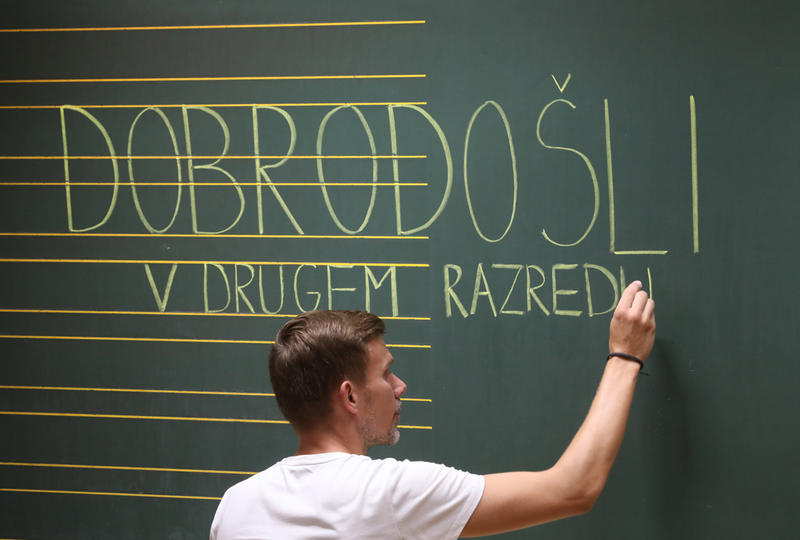 DOBRODOŠLI
V DRUGEM RAZREDU